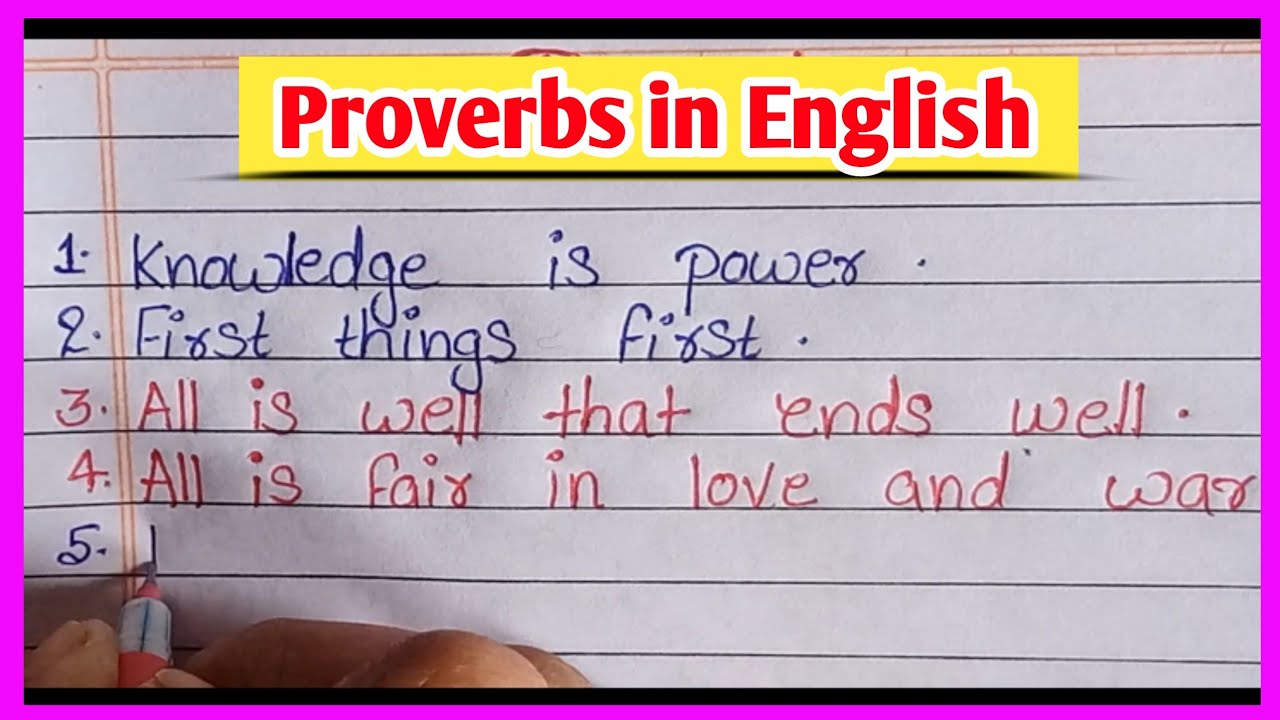 Proverbs in English
1. Knowledge is power.
2. First things first.
3. All is well that ends well.
4. All is fair in love and war
5.